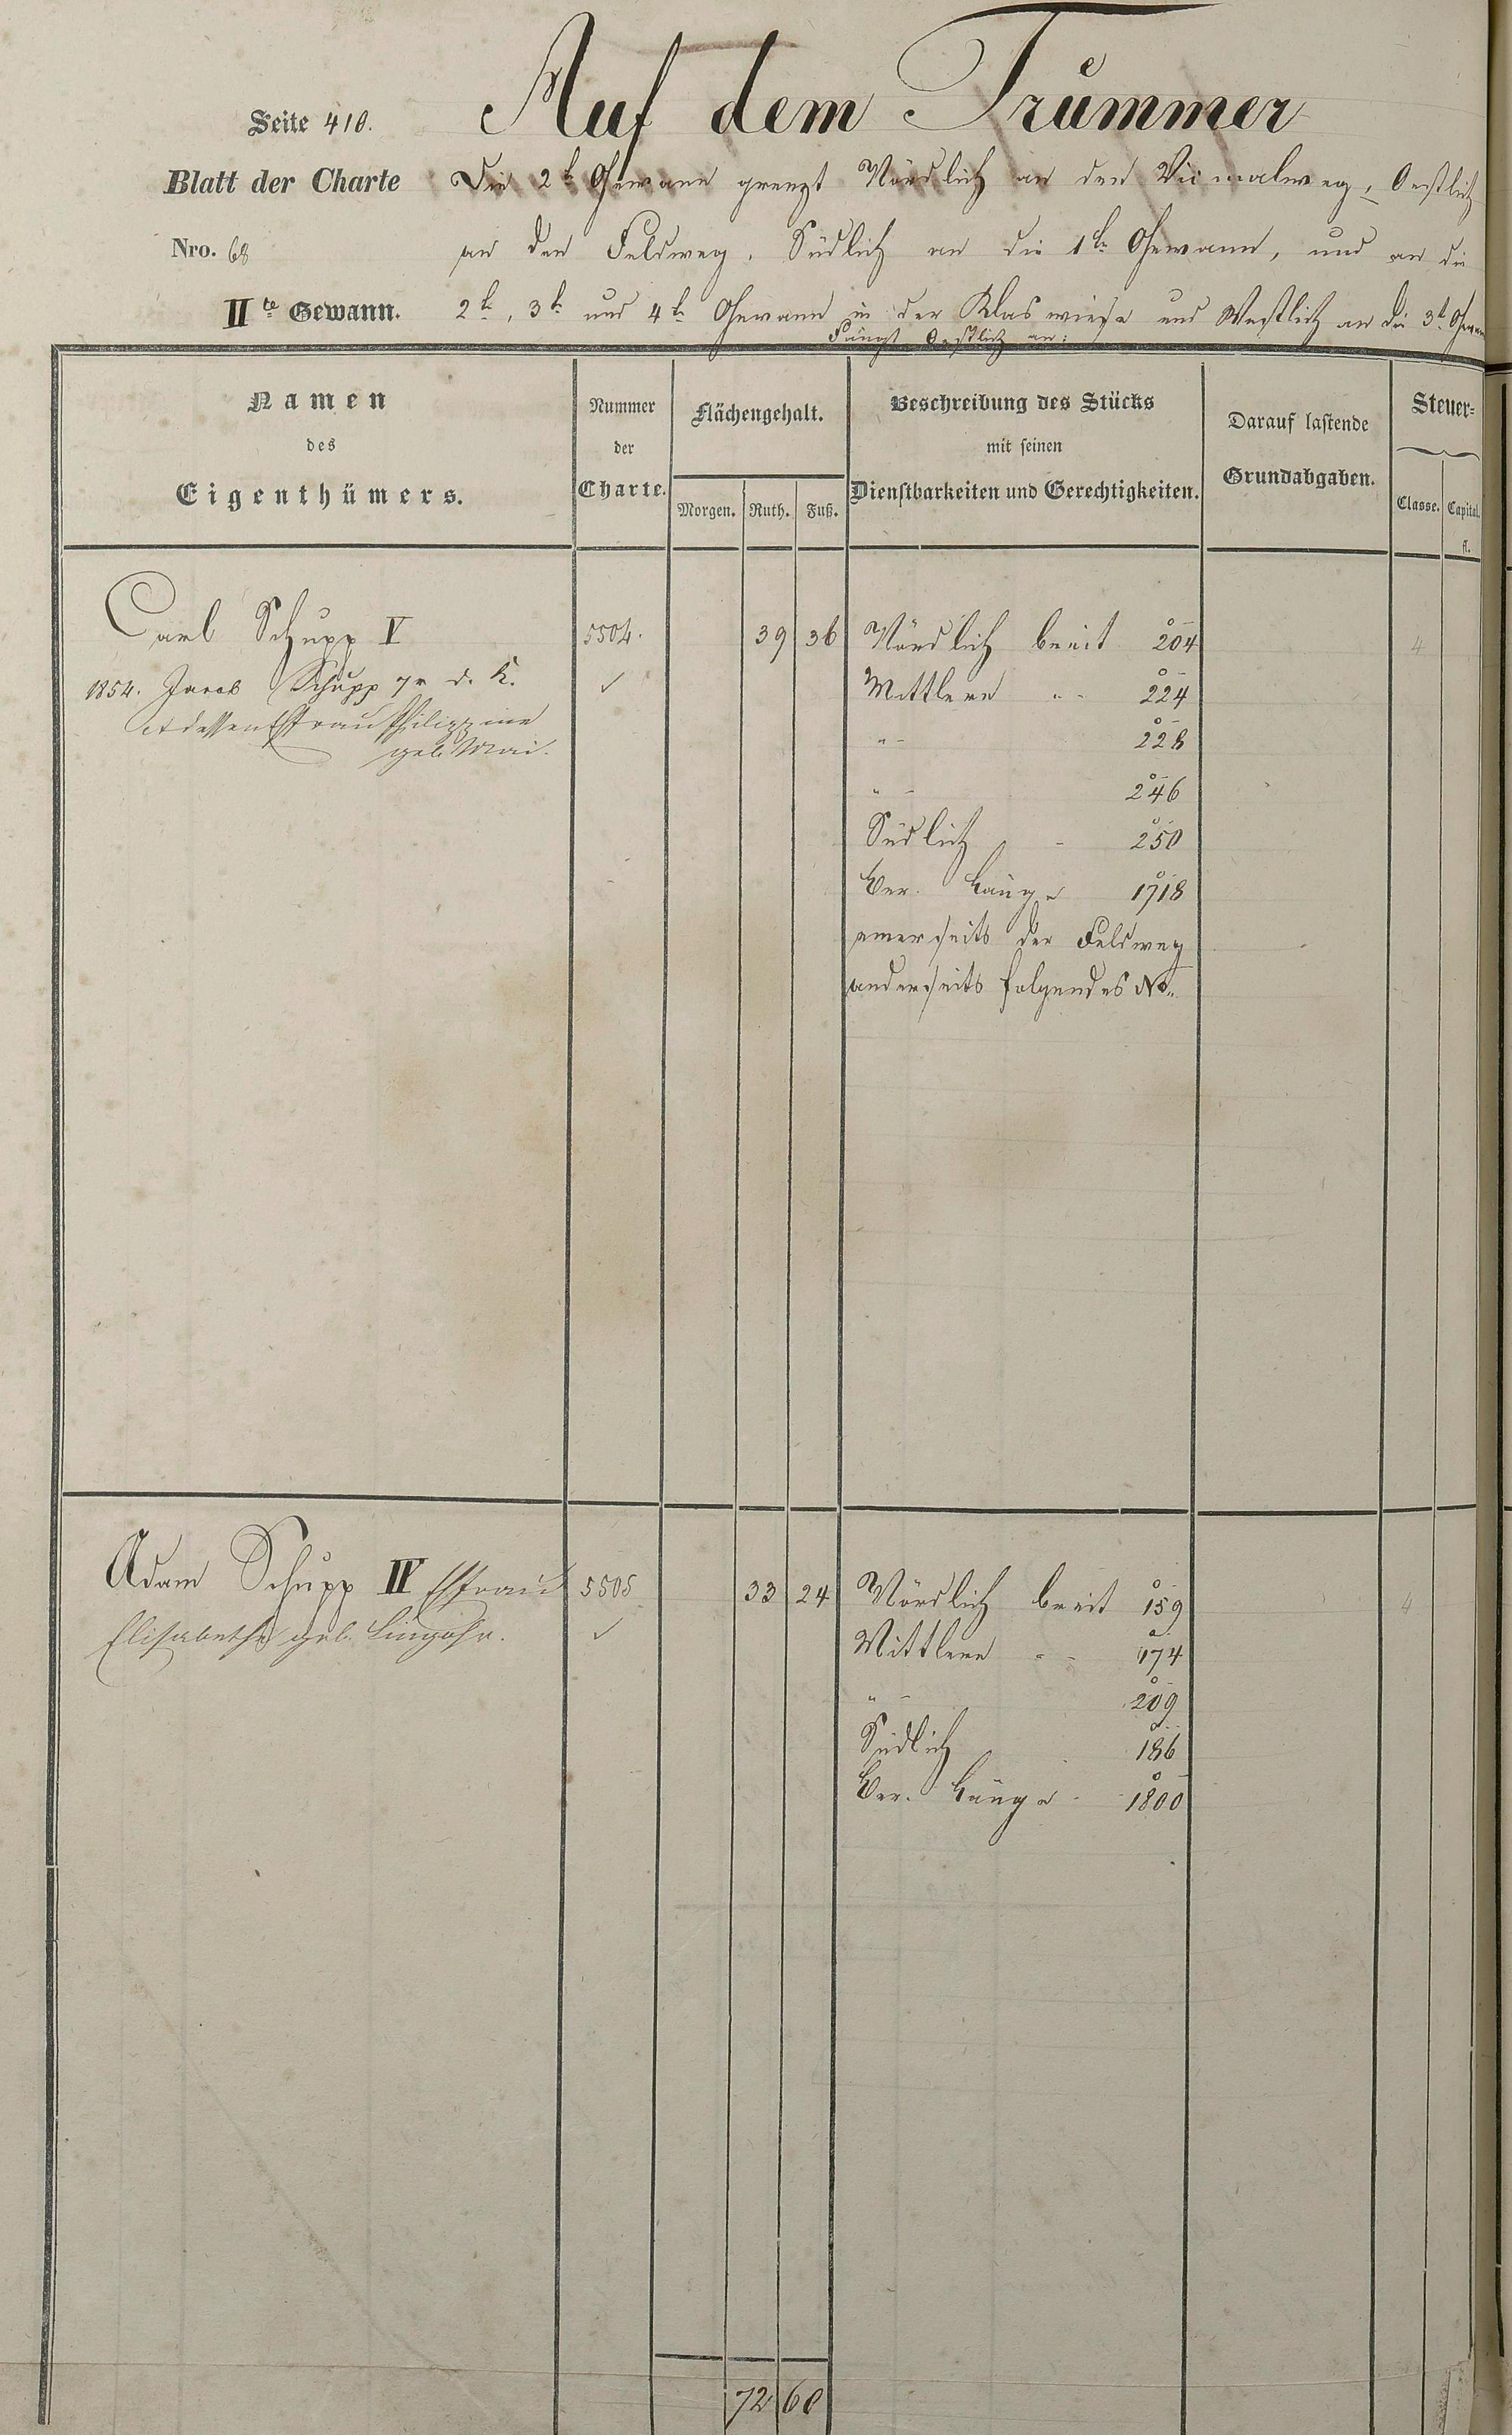 Auf dem Trümmer
Seite 410.
Blatt der Charte Die 2te Gewann grenzt Nördlich an den Vicinalweg, Oestlich
Nro. 68 an den Feldweg, Südlich an die 1te Gewann, und an die
IIte Gewann. 2te, 3te und 4te Gewann in der Klaswiese und Westlich an die 3te Gewann
Fängt Oestlich an:
Namen des Eigenthümers.
Nummer der Charte.
Flächengehalt.
Morgen. Ruth. Fuß.
Beschreibung des Stücks mit seinen Dienstbarkeiten und Gerechtigkeiten.
Darauf lastende Grundabgaben.
Steuer=
Classe. Capital.
fl.
Carl Schupp V 5504. 39 36 Nördlich breit 204 4
1854. Jacob Schupp 7r d. K. ✓ Mittlere " " 224
et dessen Ehfrau Philippine
geb. Mai.
" 228
" 246
Südlich 250
Ver. Länge 1718
einerseits der Feldweg
anderseits folgendes No.
Adam Schupp IV Ehfrau 5505 33 24 Nördlich breit 159 4
Elisabetha geb. Lingohr. ✓ Mittlere " " 174
" 209
Südlich 186
Ver. Länge 1800
72 60